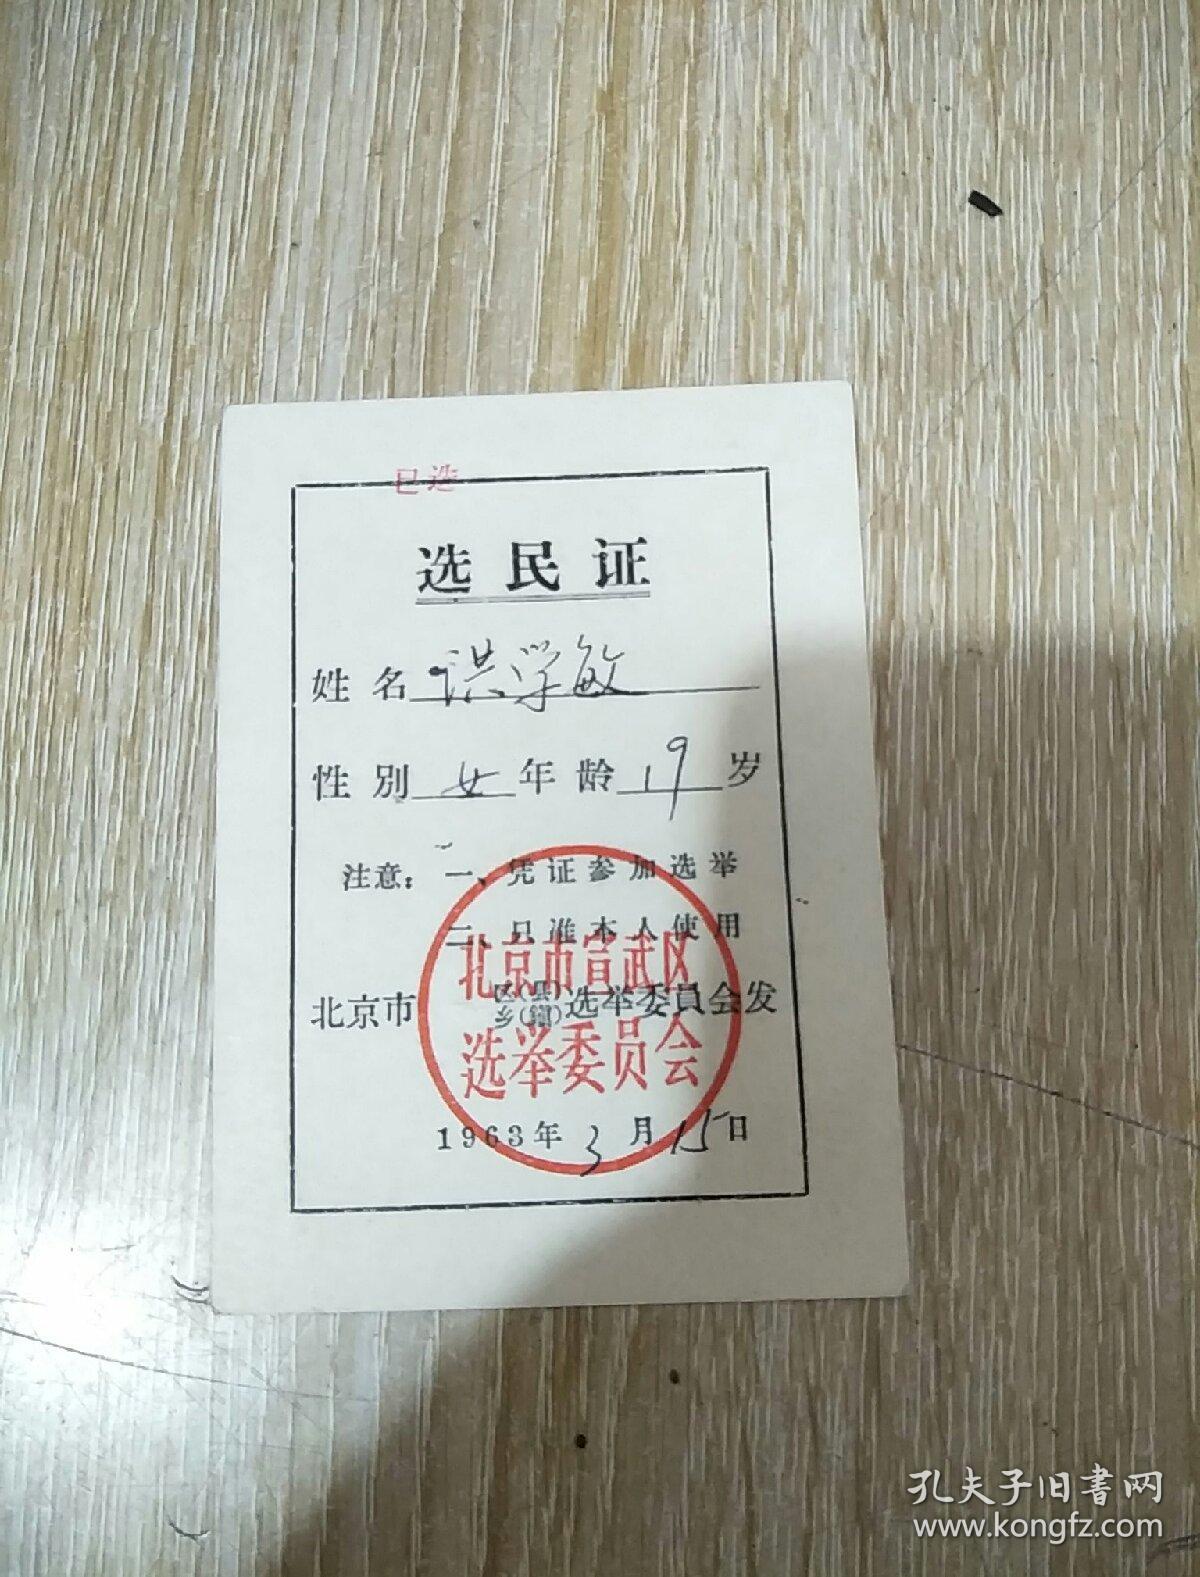 已选
选民证
姓名 洪学敏
性別 女 年龄 19 岁
注意：一、凭证参加选举
二、只准本人使用
北京市 区(县) 乡(鎭) 选举委員会发
北京市宣武区
选举委员会
1963年 3 月 15 日
孔夫子旧書网
www.kongfz.com